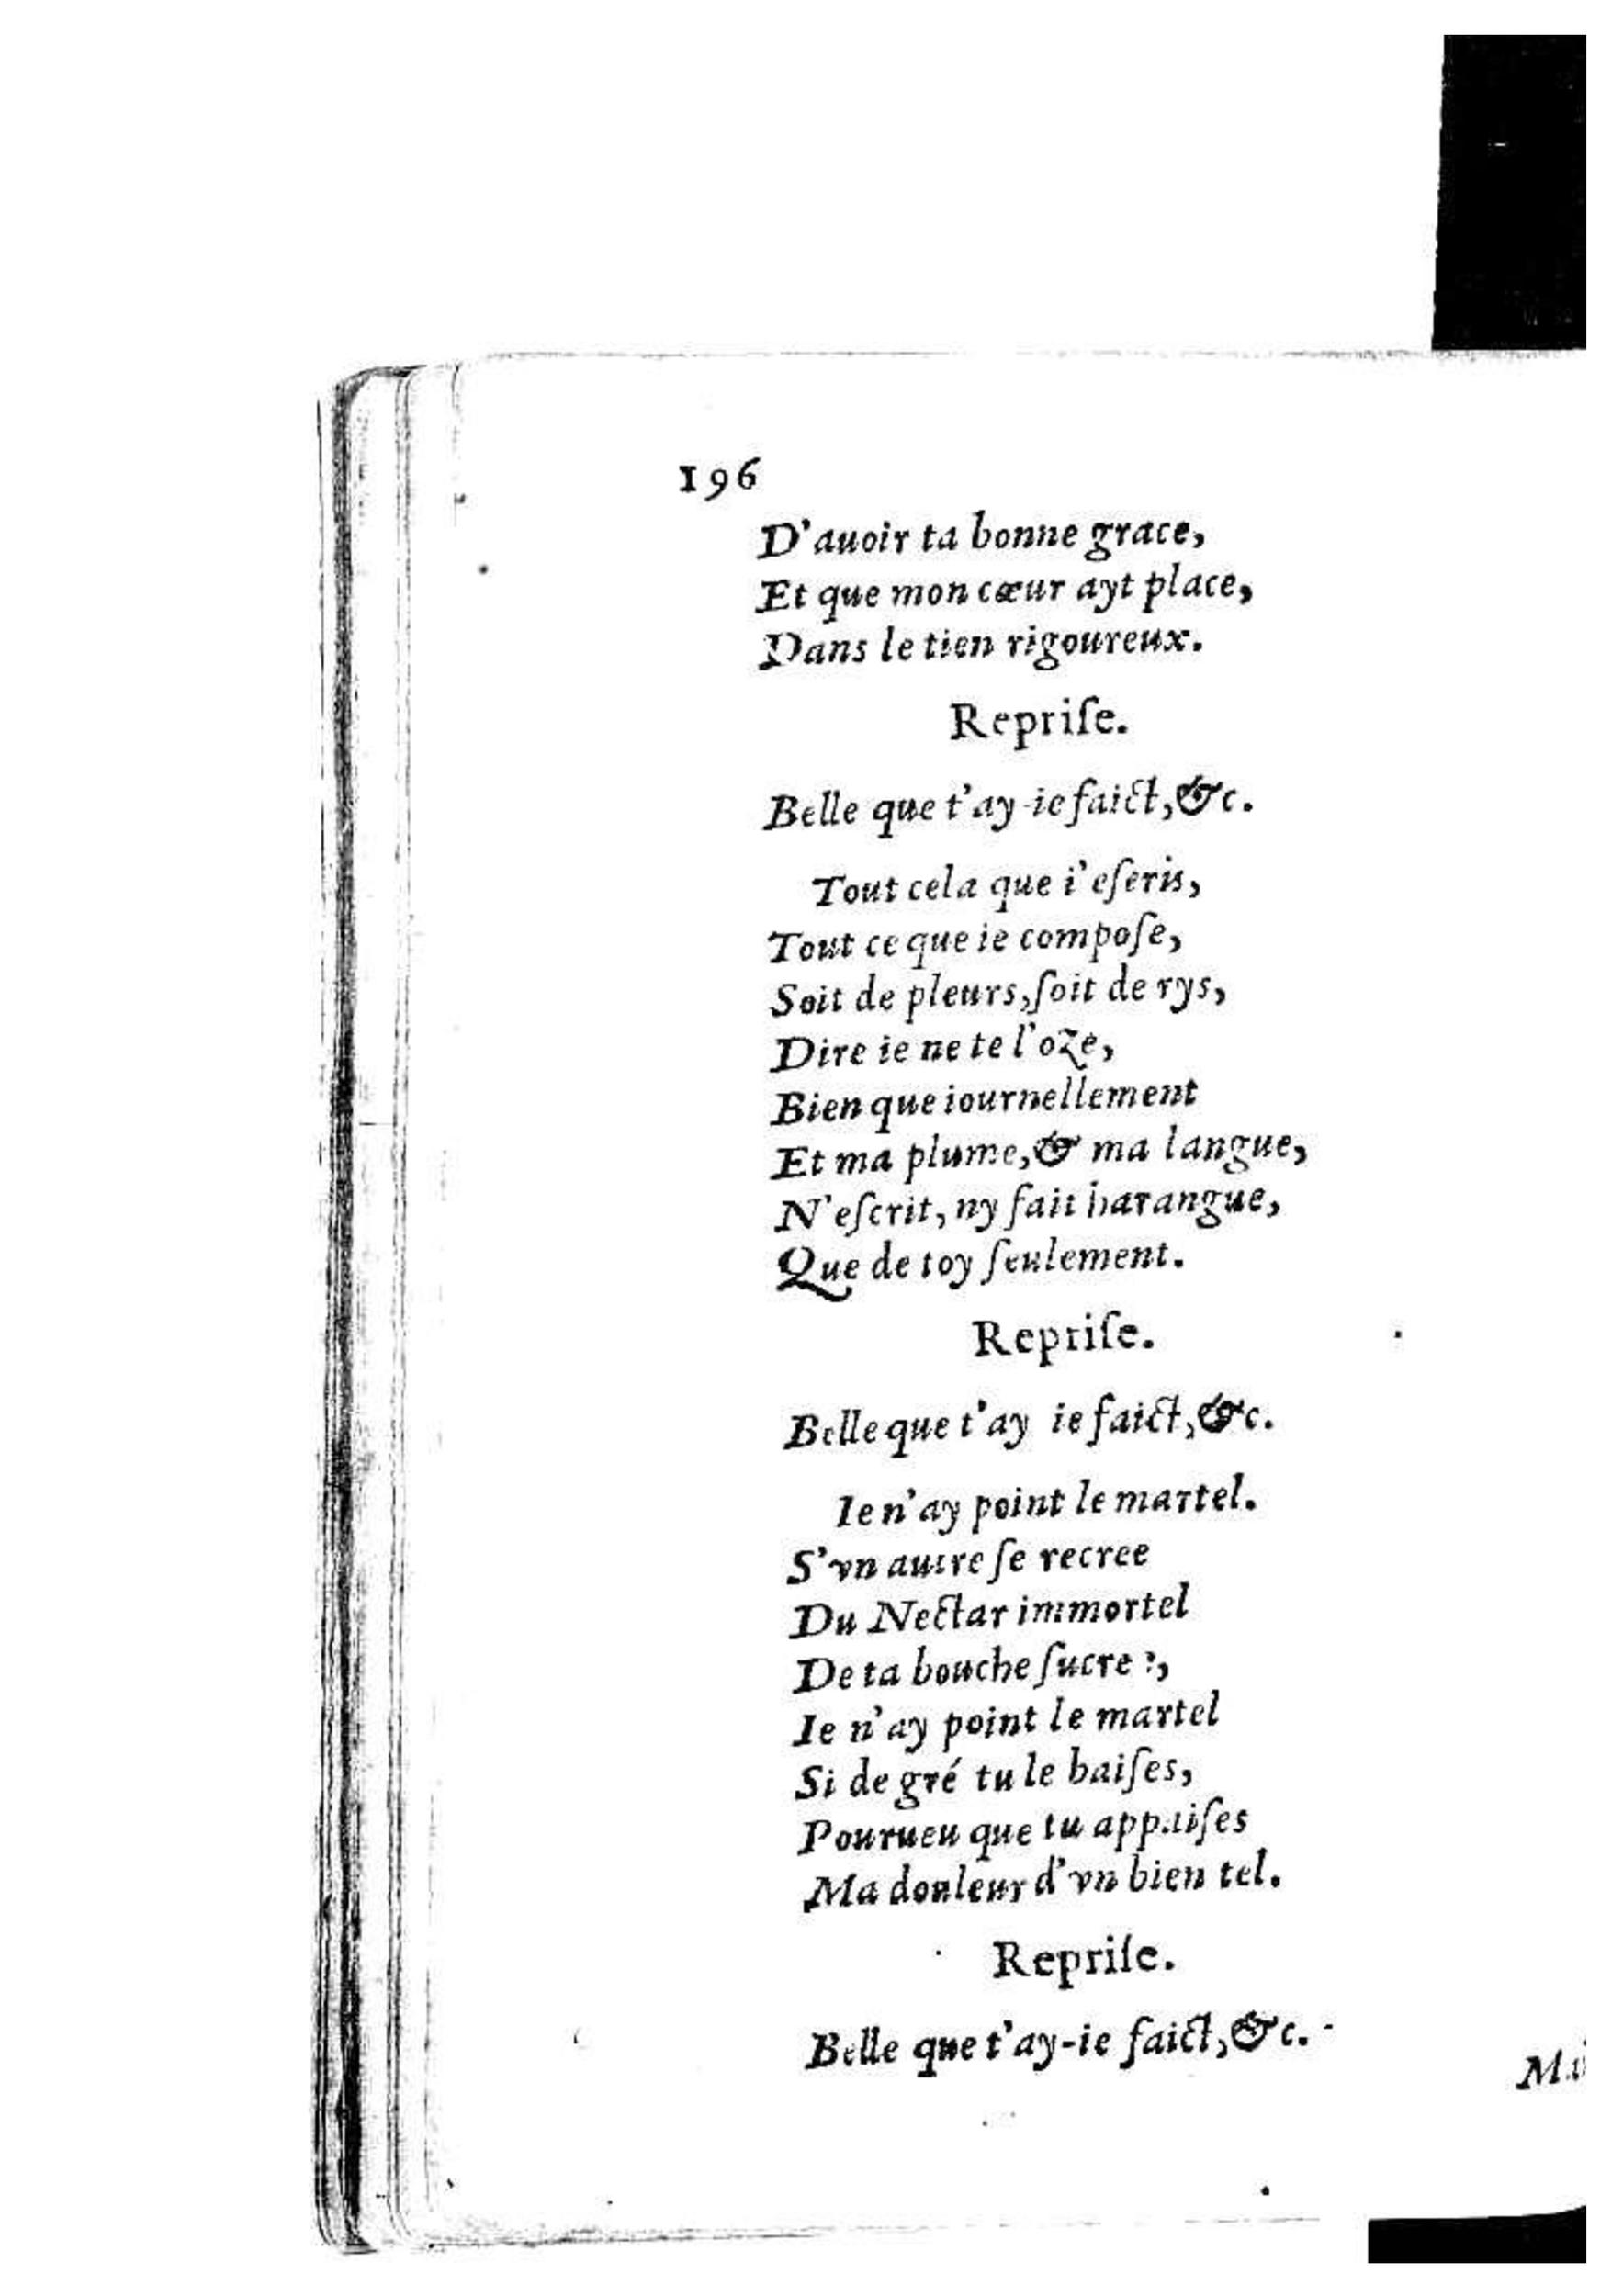 196
D'auoir ta bonne grace,
Et que mon cœur ayt place,
Dans le tien rigoureux.
Repriſe.
Belle que t'ay-ie faict, &c.
Tout cela que i'eſeris,
Tout ce que ie compoſe,
Soit de pleurs, ſoit de rys,
Dire ie ne te l'oze,
Bien que iournellement
Et ma plume, & ma langue,
N'eſcrit, ny fait harangue,
Que de toy ſeulement.
Repriſe.
Belle que t'ay ie faict, &c.
Ie n'ay point le martel.
S'vn autre ſe recree
Du Nectar immortel
De ta bouche ſucree,
Ie n'ay point le martel
Si de gré tu le baiſes,
Pourueu que tu appaiſes
Ma douleur d'vn bien tel.
Repriſe.
Belle que t'ay-ie faict, &c.